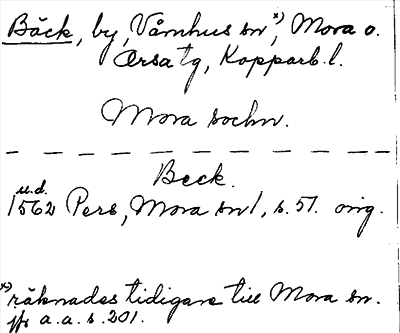 Bäck, by, Våmhus sn *), Mora o.
Orsa tg, Kopparb. l.
Mora sochn.
Beck.
u.d.
1562 Pers, Mora sn 1, s. 51. orig.
*) räknades tidigare till Mora sn.
jfr a. a. s. 201.